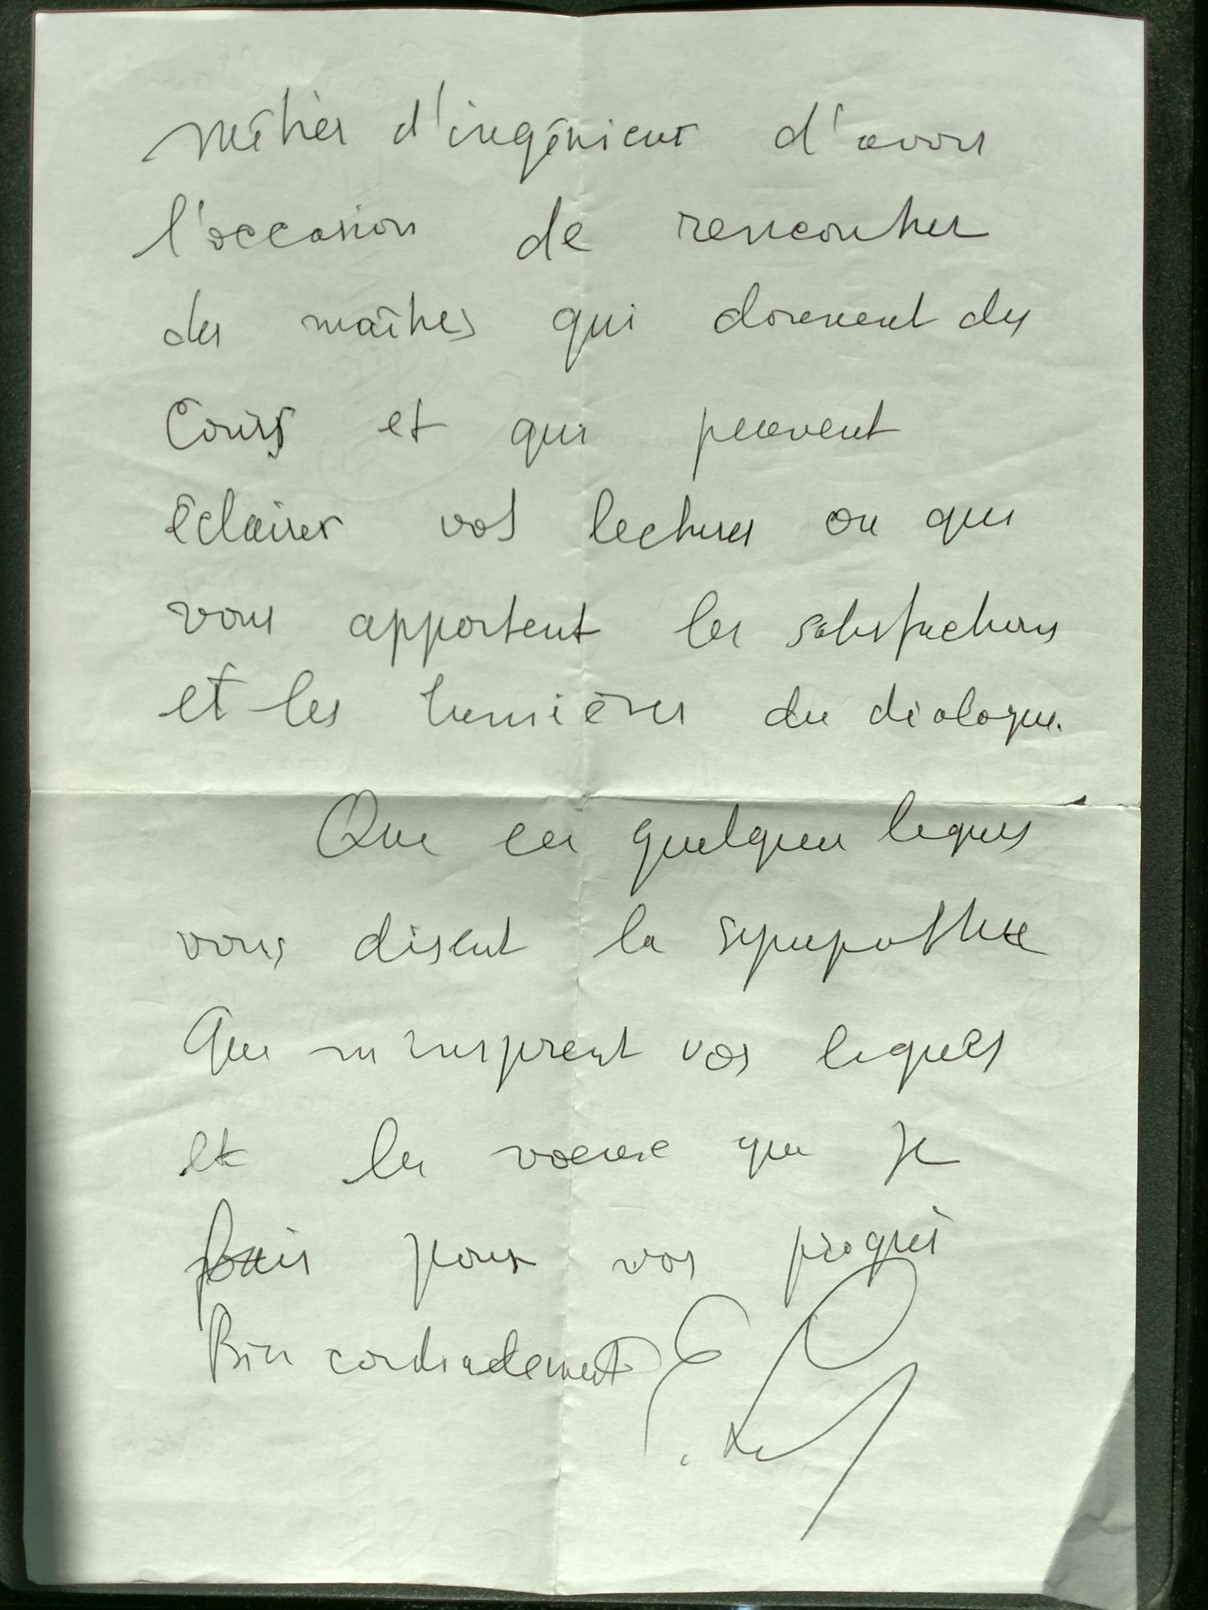 métier d'ingénieur d'avoir
l'occasion de rencontrer
des maîtres qui donnent des
Cours et qui peuvent
éclairer vos lectures ou qui
vous apportent les satisfactions
et les lumières du dialogue.
Que ces quelques lignes
vous disent la sympathie
que m'inspirent vos lignes
et les voeux que je
fais pour vos progrès
Bien cordialement